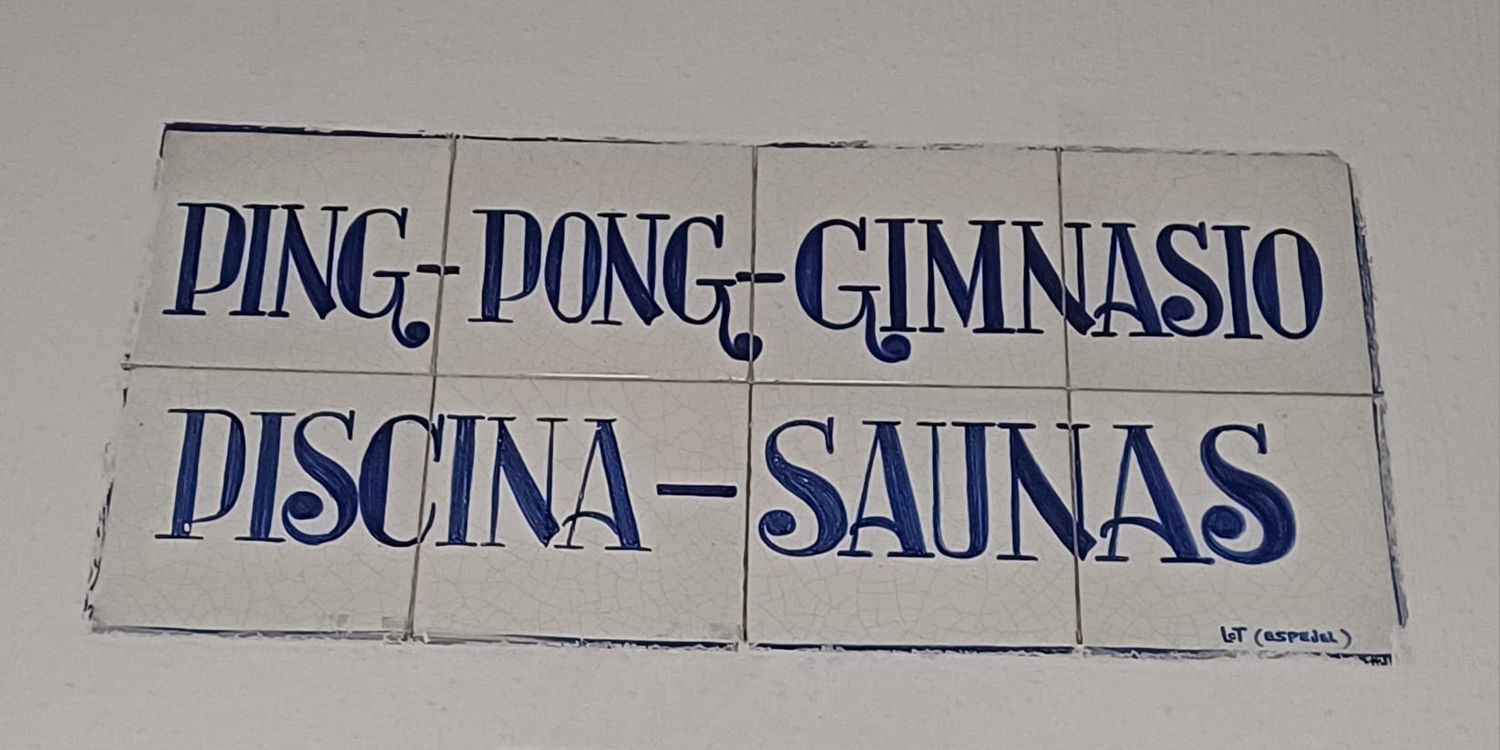 PING-PONG-GIMNASIO
PISCINA-SAUNAS
LOT (ESPEJEL)